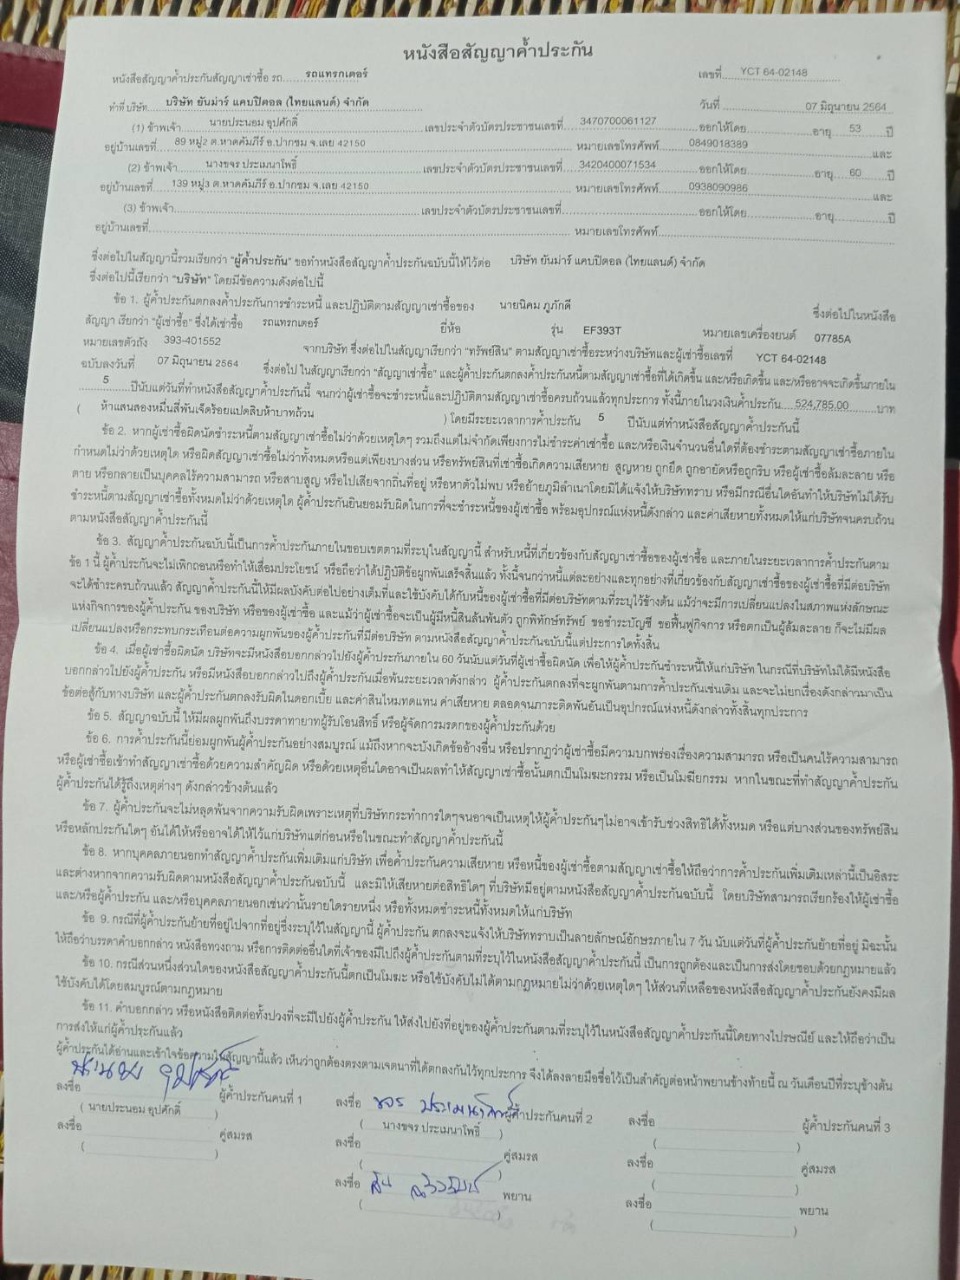 หนังสือสัญญาค้ำประกัน
หนังสือสัญญาค้ำประกันสัญญาเช่าซื้อ รถ.....รถแทรกเตอร์ เลขที่ YCT 64-02148
ทำที่ บริษัท บริษัท ยันม่าร์ แคปปิตอล (ไทยแลนด์) จำกัด วันที่ 07 มิถุนายน 2564
(1) ข้าพเจ้า นายประนอม อุปศักดิ์ เลขประจำตัวบัตรประชาชนเลขที่ 3470700061127 ออกให้โดย อายุ 53 ปี
อยู่บ้านเลขที่ 89 หมู่2 ต.หาดคัมภีร์ อ.ปากชม จ.เลย 42150 หมายเลขโทรศัพท์ 0849018389 และ
(2) ข้าพเจ้า นางขจร ประเมนาโพธิ์ เลขประจำตัวบัตรประชาชนเลขที่ 3420400071534 ออกให้โดย อายุ 60 ปี
อยู่บ้านเลขที่ 139 หมู่3 ต.หาดคัมภีร์ อ.ปากชม จ.เลย 42150 หมายเลขโทรศัพท์ 0938090986 และ
(3) ข้าพเจ้า เลขประจำตัวบัตรประชาชนเลขที่ ออกให้โดย อายุ ปี
อยู่บ้านเลขที่ หมายเลขโทรศัพท์
ซึ่งต่อไปในสัญญานี้รวมเรียกว่า "ผู้ค้ำประกัน" ขอทำหนังสือสัญญาค้ำประกันฉบับนี้ให้ไว้ต่อ บริษัท ยันม่าร์ แคปปิตอล (ไทยแลนด์) จำกัด
ซึ่งต่อไปนี้เรียกว่า "บริษัท" โดยมีข้อความดังต่อไปนี้
ข้อ 1. ผู้ค้ำประกันตกลงค้ำประกันการชำระหนี้ และปฏิบัติตามสัญญาเช่าซื้อของ นายนิคม ภูภักดี ซึ่งต่อไปในหนังสือ
สัญญา เรียกว่า "ผู้เช่าซื้อ" ซึ่งได้เช่าซื้อ รถแทรกเตอร์ ยี่ห้อ รุ่น EF393T หมายเลขเครื่องยนต์ 07785A
หมายเลขตัวถัง 393-401552 จากบริษัท ซึ่งต่อไปในสัญญาเรียกว่า "ทรัพย์สิน" ตามสัญญาเช่าซื้อระหว่างบริษัทและผู้เช่าซื้อเลขที่ YCT 64-02148
ฉบับลงวันที่ 07 มิถุนายน 2564 ซึ่งต่อไป ในสัญญาเรียกว่า "สัญญาเช่าซื้อ" และผู้ค้ำประกันตกลงค้ำประกันหนี้ตามสัญญาเช่าซื้อที่ได้เกิดขึ้น และ/หรือเกิดขึ้น และ/หรืออาจจะเกิดขึ้นภายใน
5 ปีนับแต่วันที่ทำหนังสือสัญญาค้ำประกันนี้ จนกว่าผู้เช่าซื้อจะชำระหนี้และปฏิบัติตามสัญญาเช่าซื้อครบถ้วนแล้วทุกประการ ทั้งนี้ภายในวงเงินค้ำประกัน 524,785.00 บาท
( ห้าแสนสองหมื่นสี่พันเจ็ดร้อยแปดสิบห้าบาทถ้วน ) โดยมีระยะเวลาการค้ำประกัน 5 ปีนับแต่ทำหนังสือสัญญาค้ำประกันนี้
ข้อ 2. หากผู้เช่าซื้อผิดนัดชำระหนี้ตามสัญญาเช่าซื้อไม่ว่าด้วยเหตุใดๆ รวมถึงแต่ไม่จำกัดเพียงการไม่ชำระค่าเช่าซื้อ และ/หรือเงินจำนวนอื่นใดที่ต้องชำระตามสัญญาเช่าซื้อภายใน
กำหนดไม่ว่าด้วยเหตุใด หรือผิดสัญญาเช่าซื้อไม่ว่าทั้งหมดหรือแต่เพียงบางส่วน หรือทรัพย์สินที่เช่าซื้อเกิดความเสียหาย สูญหาย ถูกยึด ถูกอายัดหรือถูกริบ หรือผู้เช่าซื้อล้มละลาย หรือ
ตาย หรือกลายเป็นบุคคลไร้ความสามารถ หรือสาบสูญ หรือไปเสียจากถิ่นที่อยู่ หรือหาตัวไม่พบ หรือย้ายภูมิลำเนาโดยมิได้แจ้งให้บริษัททราบ หรือมีกรณีอื่นใดอันทำให้บริษัทไม่ได้รับ
ชำระหนี้ตามสัญญาเช่าซื้อทั้งหมดไม่ว่าด้วยเหตุใด ผู้ค้ำประกันยินยอมรับผิดในการที่จะชำระหนี้ของผู้เช่าซื้อ พร้อมอุปกรณ์แห่งหนี้ดังกล่าว และค่าเสียหายทั้งหมดให้แก่บริษัทจนครบถ้วน
ตามหนังสือสัญญาค้ำประกันนี้
ข้อ 3. สัญญาค้ำประกันฉบับนี้เป็นการค้ำประกันภายในขอบเขตตามที่ระบุในสัญญานี้ สำหรับหนี้ที่เกี่ยวข้องกับสัญญาเช่าซื้อของผู้เช่าซื้อ และภายในระยะเวลาการค้ำประกันตาม
ข้อ 1 นี้ ผู้ค้ำประกันจะไม่เพิกถอนหรือทำให้เสื่อมประโยชน์ หรือถือว่าได้ปฏิบัติข้อผูกพันเสร็จสิ้นแล้ว ทั้งนี้จนกว่าหนี้แต่ละอย่างและทุกอย่างที่เกี่ยวข้องกับสัญญาเช่าซื้อของผู้เช่าซื้อที่มีต่อบริษัท
จะได้ชำระครบถ้วนแล้ว สัญญาค้ำประกันนี้ให้มีผลบังคับต่อไปอย่างเต็มที่และใช้บังคับได้กับหนี้ของผู้เช่าซื้อที่มีต่อบริษัทตามที่ระบุไว้ข้างต้น แม้ว่าจะมีการเปลี่ยนแปลงในสภาพแห่งลักษณะ
แห่งกิจการของผู้ค้ำประกัน ของบริษัท หรือของผู้เช่าซื้อ และแม้ว่าผู้เช่าซื้อจะเป็นผู้มีหนี้สินล้นพ้นตัว ถูกพิทักษ์ทรัพย์ ขอชำระบัญชี ขอฟื้นฟูกิจการ หรือตกเป็นผู้ล้มละลาย ก็จะไม่มีผล
เปลี่ยนแปลงหรือกระทบกระเทือนต่อความผูกพันของผู้ค้ำประกันที่มีต่อบริษัท ตามหนังสือสัญญาค้ำประกันฉบับนี้แต่ประการใดทั้งสิ้น
ข้อ 4. เมื่อผู้เช่าซื้อผิดนัด บริษัทจะมีหนังสือบอกกล่าวไปยังผู้ค้ำประกันภายใน 60 วันนับแต่วันที่ผู้เช่าซื้อผิดนัด เพื่อให้ผู้ค้ำประกันชำระหนี้ให้แก่บริษัท ในกรณีที่บริษัทไม่ได้มีหนังสือ
บอกกล่าวไปยังผู้ค้ำประกัน หรือมีหนังสือบอกกล่าวไปถึงผู้ค้ำประกันเมื่อพ้นระยะเวลาดังกล่าว ผู้ค้ำประกันตกลงที่จะผูกพันตามการค้ำประกันเช่นเดิม และจะไม่ยกเรื่องดังกล่าวมาเป็น
ข้อต่อสู้กับทางบริษัท และผู้ค้ำประกันตกลงรับผิดในดอกเบี้ย และค่าสินไหมทดแทน ค่าเสียหาย ตลอดจนภาระติดพันอันเป็นอุปกรณ์แห่งหนี้ดังกล่าวทั้งสิ้นทุกประการ
ข้อ 5. สัญญาฉบับนี้ ให้มีผลผูกพันถึงบรรดาทายาทผู้รับโอนสิทธิ์ หรือผู้จัดการมรดกของผู้ค้ำประกันด้วย
ข้อ 6. การค้ำประกันนี้ย่อมผูกพันผู้ค้ำประกันอย่างสมบูรณ์ แม้ถึงหากจะบังเกิดข้ออ้างอื่น หรือปรากฏว่าผู้เช่าซื้อมีความบกพร่องเรื่องความสามารถ หรือเป็นคนไร้ความสามารถ
หรือผู้เช่าซื้อเข้าทำสัญญาเช่าซื้อด้วยความสำคัญผิด หรือด้วยเหตุอื่นใดอาจเป็นผลทำให้สัญญาเช่าซื้อนั้นตกเป็นโมฆะกรรม หรือเป็นโมฆียกรรม หากในขณะที่ทำสัญญาค้ำประกัน
ผู้ค้ำประกันได้รู้ถึงเหตุต่างๆ ดังกล่าวข้างต้นแล้ว
ข้อ 7. ผู้ค้ำประกันจะไม่หลุดพ้นจากความรับผิดเพราะเหตุที่บริษัทกระทำการใดๆจนอาจเป็นเหตุให้ผู้ค้ำประกันๆไม่อาจเข้ารับช่วงสิทธิได้ทั้งหมด หรือแต่บางส่วนของทรัพย์สิน
หรือหลักประกันใดๆ อันได้ให้หรืออาจได้ให้ไว้แก่บริษัทแต่ก่อนหรือในขณะทำสัญญาค้ำประกันนี้
ข้อ 8. หากบุคคลภายนอกทำสัญญาค้ำประกันเพิ่มเติมแก่บริษัท เพื่อค้ำประกันความเสียหาย หรือหนี้ของผู้เช่าซื้อตามสัญญาเช่าซื้อให้ถือว่าการค้ำประกันเพิ่มเติมเหล่านี้เป็นอิสระ
และต่างหากจากความรับผิดตามหนังสือสัญญาค้ำประกันฉบับนี้ และมิให้เสียหายต่อสิทธิใดๆ ที่บริษัทมีอยู่ตามหนังสือสัญญาค้ำประกันฉบับนี้ โดยบริษัทสามารถเรียกร้องให้ผู้เช่าซื้อ
และ/หรือผู้ค้ำประกัน และ/หรือบุคคลภายนอกเช่นว่านั้นรายใดรายหนึ่ง หรือทั้งหมดชำระหนี้ทั้งหมดให้แก่บริษัท
ข้อ 9. กรณีที่ผู้ค้ำประกันย้ายที่อยู่ไปจากที่อยู่ซึ่งระบุไว้ในสัญญานี้ ผู้ค้ำประกัน ตกลงจะแจ้งให้บริษัททราบเป็นลายลักษณ์อักษรภายใน 7 วัน นับแต่วันที่ผู้ค้ำประกันย้ายที่อยู่ มิฉะนั้น
ให้ถือว่าบรรดาคำบอกกล่าว หนังสือทวงถาม หรือการติดต่ออื่นใดที่เจ้าของมีไปถึงผู้ค้ำประกันตามที่ระบุไว้ในหนังสือสัญญาค้ำประกันนี้ เป็นการถูกต้องและเป็นการส่งโดยชอบด้วยกฎหมายแล้ว
ข้อ 10. กรณีส่วนหนึ่งส่วนใดของหนังสือสัญญาค้ำประกันนี้ตกเป็นโมฆะ หรือใช้บังคับไม่ได้ตามกฎหมายไม่ว่าด้วยเหตุใดๆ ให้ส่วนที่เหลือของหนังสือสัญญาค้ำประกันยังคงมีผล
ใช้บังคับได้โดยสมบูรณ์ตามกฎหมาย
ข้อ 11. คำบอกกล่าว หรือหนังสือติดต่อทั้งปวงที่จะมีไปยังผู้ค้ำประกัน ให้ส่งไปยังที่อยู่ของผู้ค้ำประกันตามที่ระบุไว้ในหนังสือสัญญาค้ำประกันนี้โดยทางไปรษณีย์ และให้ถือว่าเป็น
การส่งให้แก่ผู้ค้ำประกันแล้ว
ผู้ค้ำประกันได้อ่านและเข้าใจข้อความในสัญญานี้แล้ว เห็นว่าถูกต้องตรงตามเจตนาที่ได้ตกลงกันไว้ทุกประการ จึงได้ลงลายมือชื่อไว้เป็นสำคัญต่อหน้าพยานข้างท้ายนี้ ณ วันเดือนปีที่ระบุข้างต้น
ลงชื่อ ประนอม อุปศักดิ์ ผู้ค้ำประกันคนที่ 1 ลงชื่อ ขจร ประเมนาโพธิ์ ผู้ค้ำประกันคนที่ 2 ลงชื่อ ผู้ค้ำประกันคนที่ 3
( นายประนอม อุปศักดิ์ ) ( นางขจร ประเมนาโพธิ์ ) ( )
ลงชื่อ คู่สมรส ลงชื่อ คู่สมรส ลงชื่อ คู่สมรส
( ) ( ) ( )
ลงชื่อ พยาน ลงชื่อ พยาน
( ) ( )